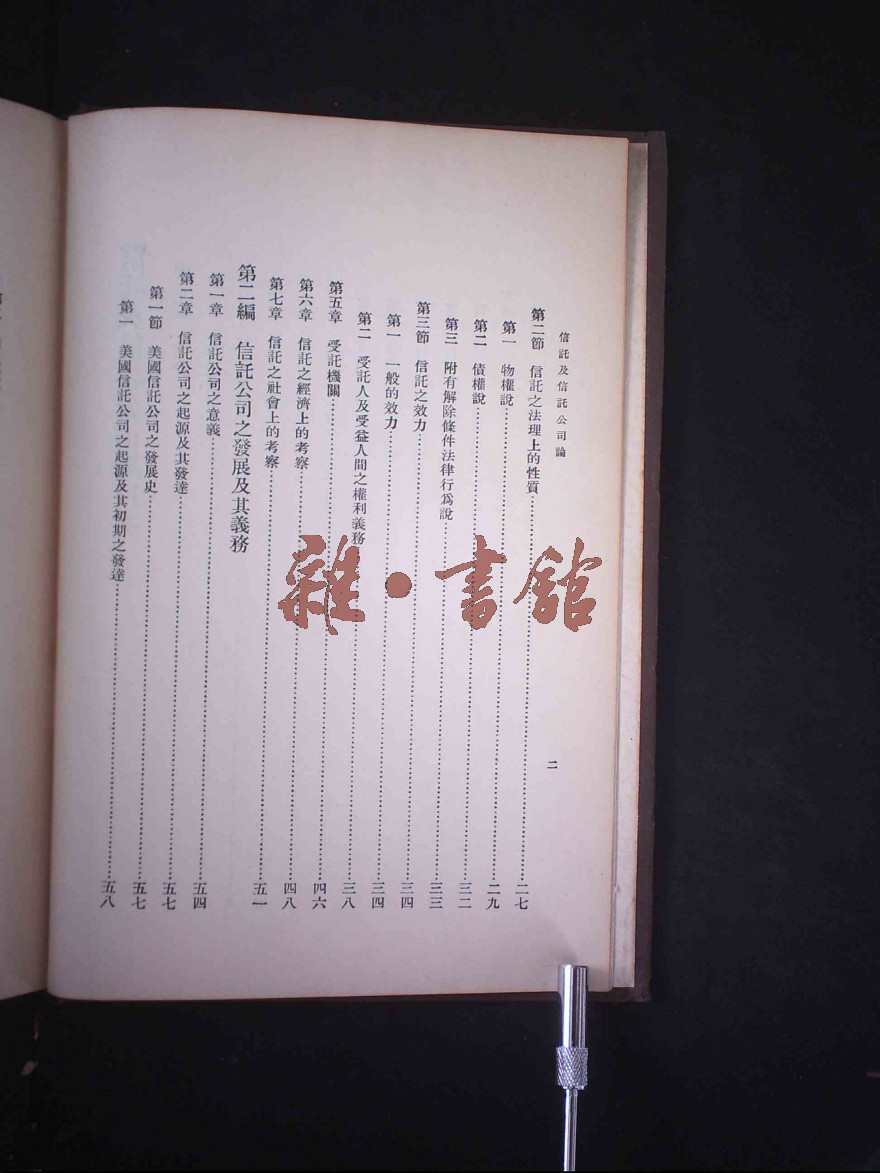 信託及信託公司論
二
第二節 信託之法理上的性質……二七
第一 物權說……二九
第二 債權說……三二
第三 附有解除條件法律行爲說……三三
第三節 信託之效力……三四
第一 一般的效力……三四
第二 受託人及受益人間之權利義務……三八
第五章 受託機關……四六
第六章 信託之經濟上的考察……四八
第七章 信託之社會上的考察……五一
第二編 信託公司之發展及其義務
第一章 信託公司之意義……五四
第二章 信託公司之起源及其發達……五七
第一節 美國信託公司之發展史……五七
第一 美國信託公司之起源及其初期之發達……五八
雜·書館